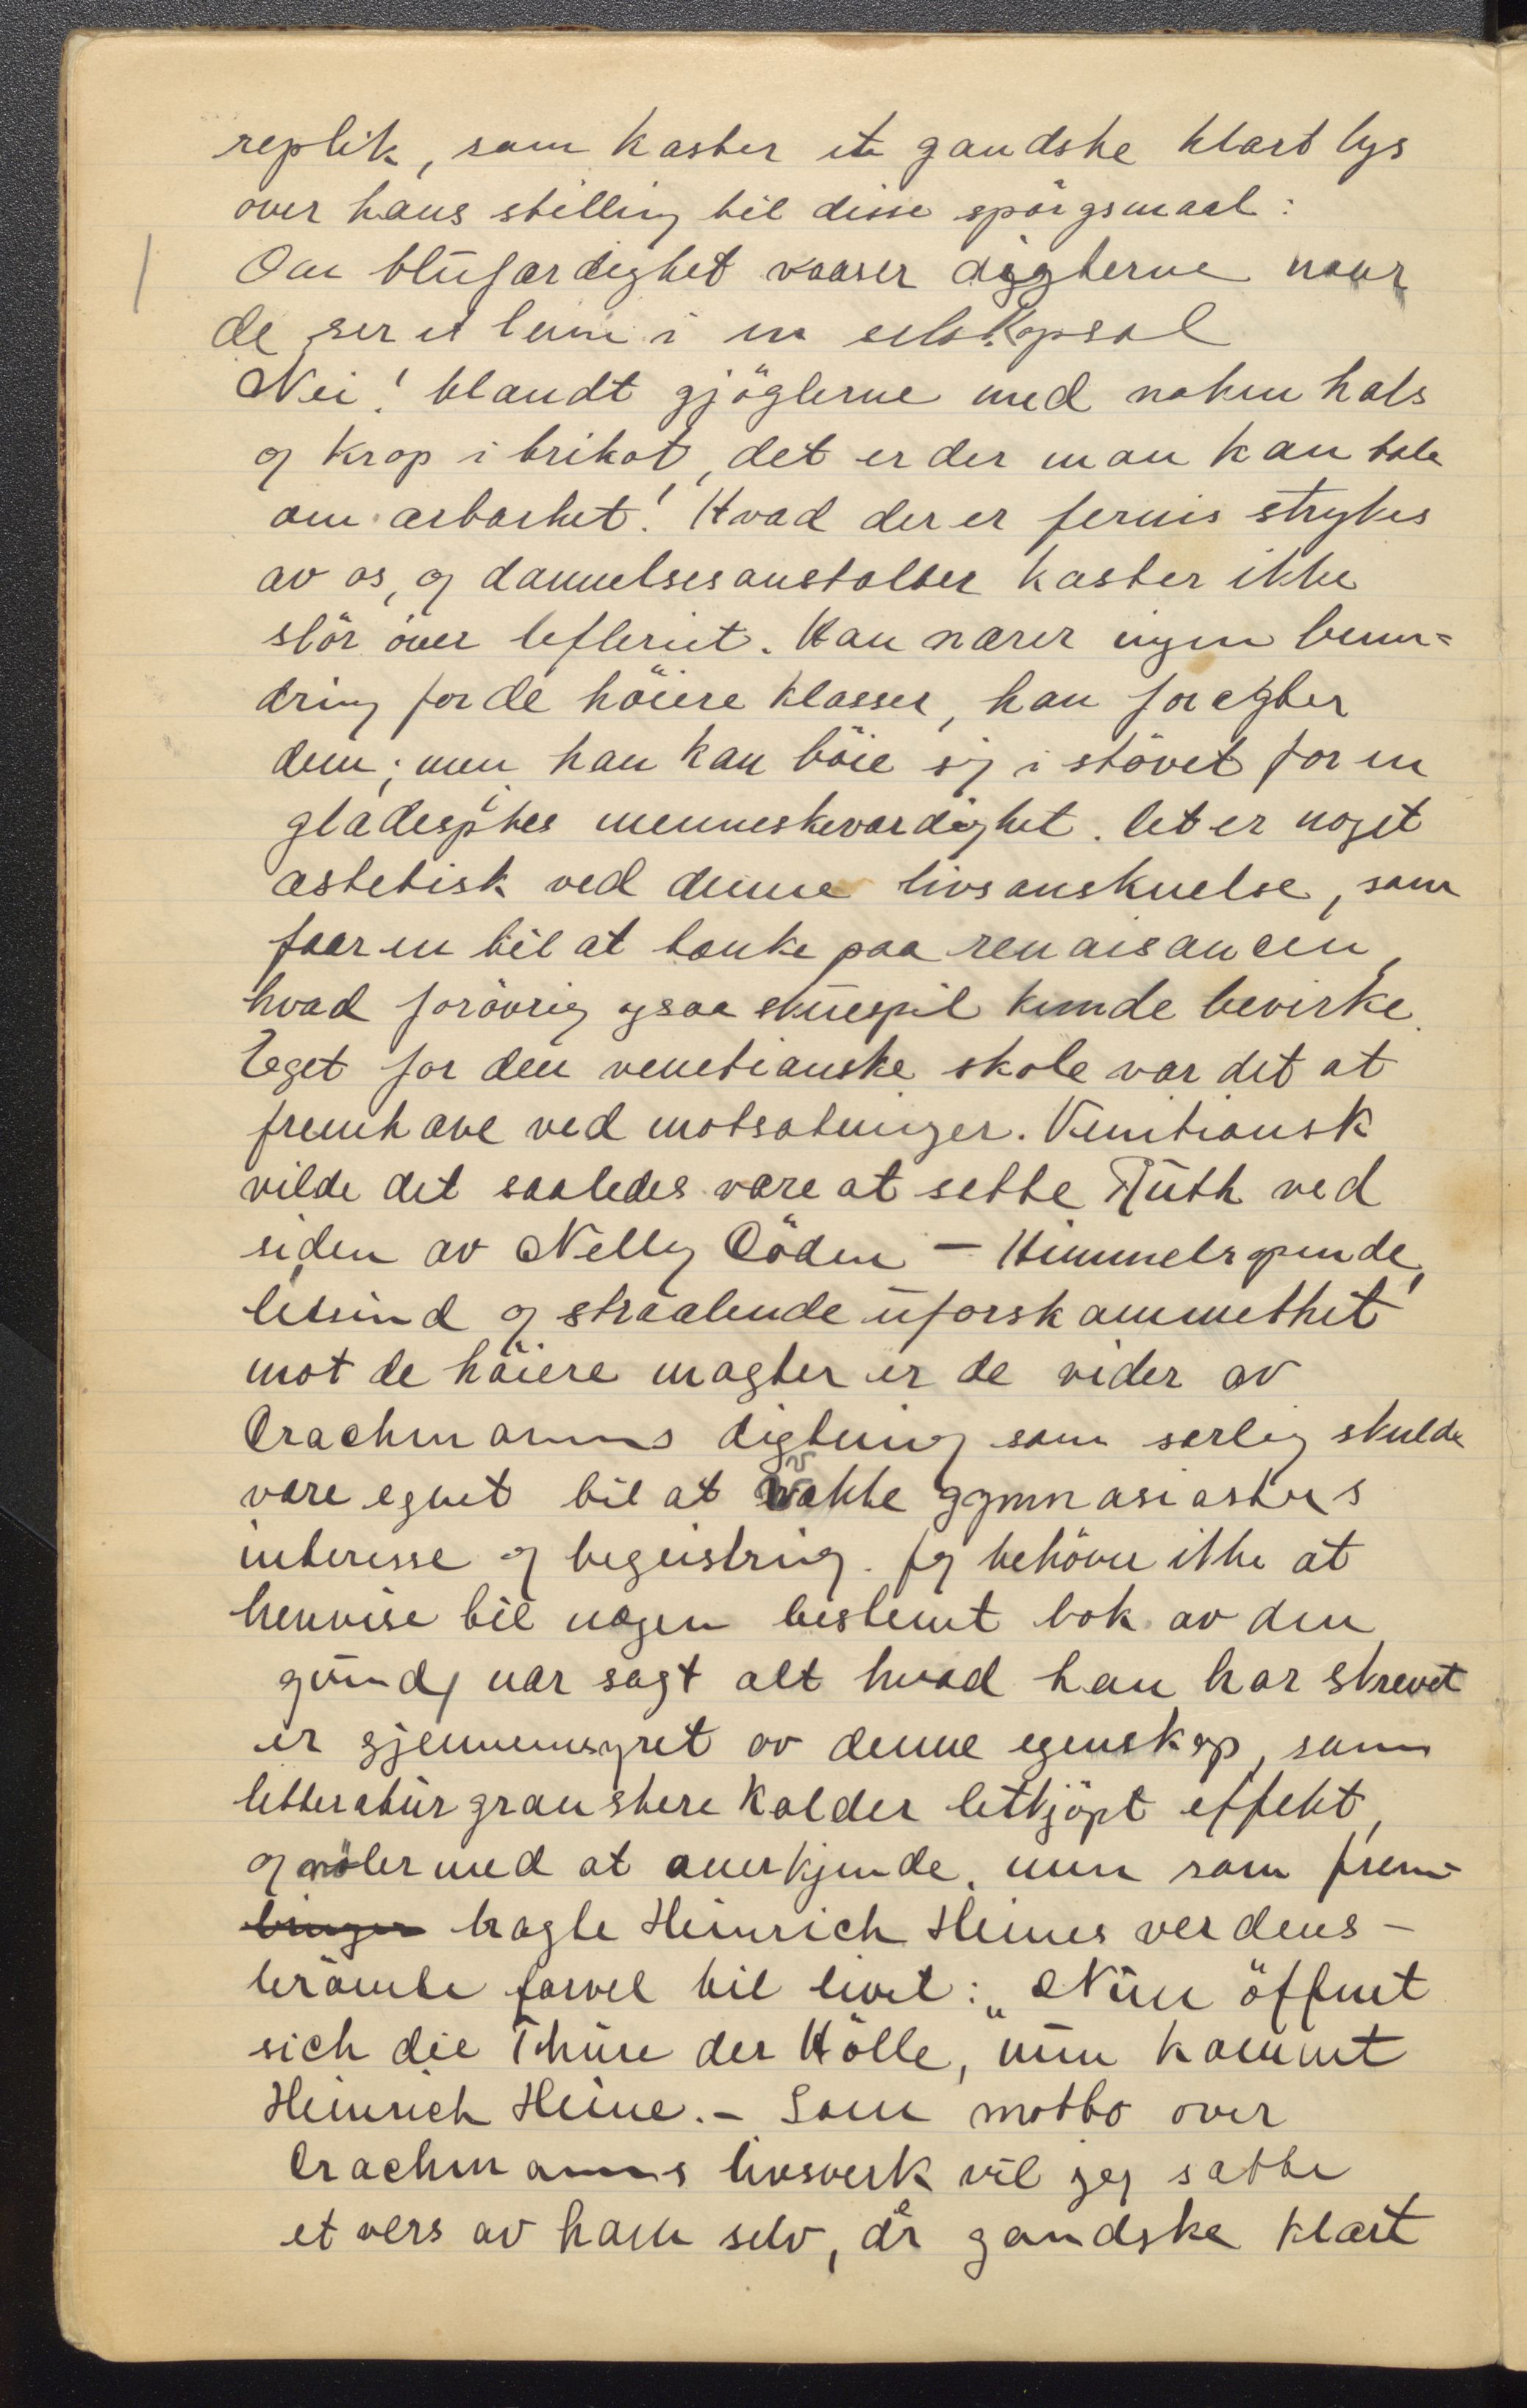 replik, som kaster et gandske klart lys
over hans stilling til disse spörgsmaal:
Om blufærdighet vaaser digterne naar
de ser et lem i en selskapsal
Nei! blandt gjöglerne med naken hals
og krop i trikot, det er der man kan tale
om ærbarhet! Hvad der er fernis strykes
av os, og dannelsesanstalter kaster ikke
slör över lefleriet. Han nærer ingen beun-
dring for de höiere klasser, han foragter
dem; men han kan böie sig i stövet for en
gladespikes menneskeværdighet. Det er noget
æstetisk ved denne livsanskuelse, som
faar en til at tænke paa renaisancen,
hvad forövrig ogsaa skuespil kunde bevirke.
Eget for den venetianske skole var det at
fremhæve ved motsætninger. Venitiansk
vilde det saaledes være at sette Ruth ved
siden av Nelly Döden – Himmelropende,
letsind og straalende uforskammethet
mot de höiere magter er de sider av
Drachmanns digtning som særlig skulde
være egnet til at vække gymnasiasters
interesse og begeistring. Jeg behöver ikke at
henvise til nogen bestemt bok av den
grund, nær sagt alt hvad han har skrevet
er gjennemsyret av denne egenskap, som
litteraturgranskere kalder letkjöpt effekt,
og nöler med at anerkjende, men som frem-
bringer bragte Heinrich Heines verdens-
berömte farvel til livet: „Nun öffnet
sich die Thüre der Hölle, nun kommt
Heinrich Heine. – Som motto over
Drachmanns livsverk vil jeg sætte
et vers av ham selv, der gandske klart